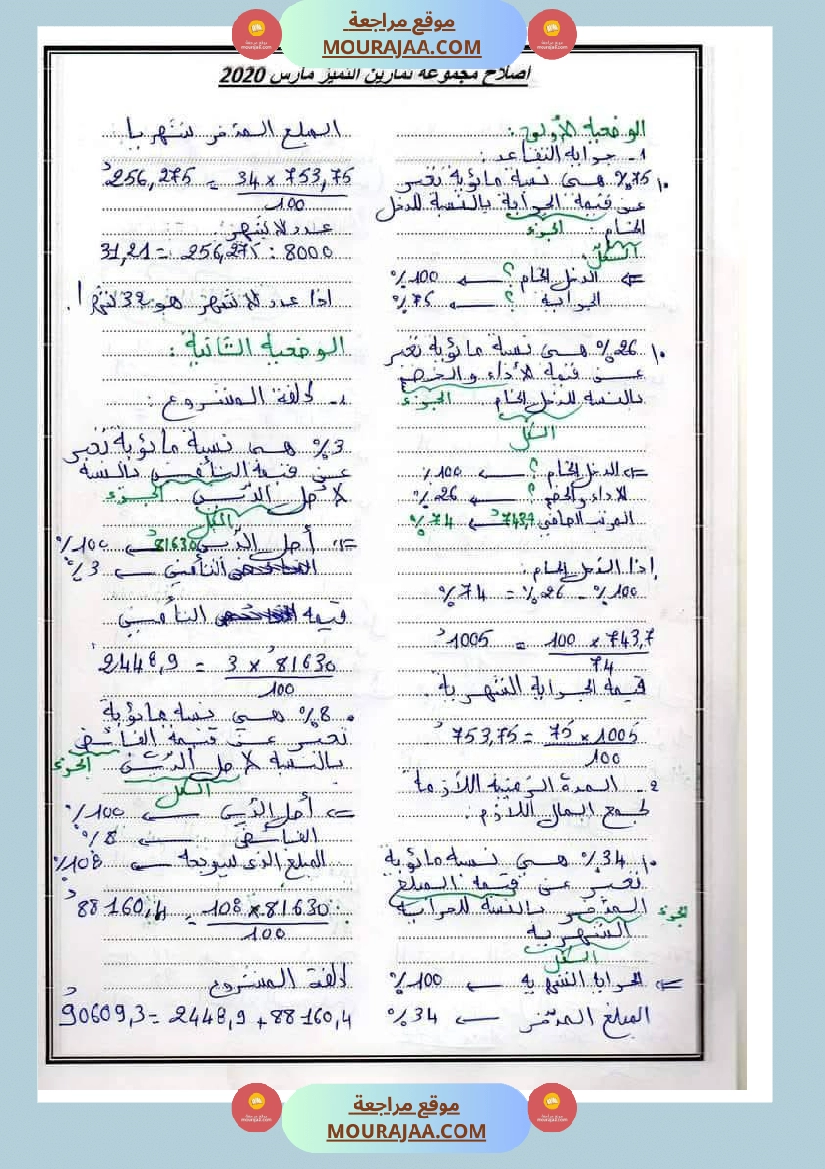 موقع مراجعة
MOURAJAA.COM
اصلاح مجموعة تمارين التميز مارس 2020
الوضعية الأولى:
1- جراية التقاعد:
75% هي نسبة مائوية تعبر
عن قيمة الجراية بالنسبة للدخل
الخام. الجزء
الكل
الدخل الخام؟ ← 100%
الجراية ؟ ← 75%
26% هي نسبة مائوية تعبر
عن قيمة الأداء والخصم
بالنسبة للدخل الخام الجزء
الكل
الدخل الخام؟ ← 100%
الأداء والخصم؟ ← 26%
المرتب الصافي 743,7د ← 74%
إذا الدخل الخام:
100% - 26% = 74%
743,7 × 100 = 1005د
74
قيمة الجراية الشهرية.
1005 × 75 = 753,75د
100
2- المدة الزمنية اللازمة
لجمع المال اللازم:
34% هي نسبة مائوية
تعبر عن قيمة المبلغ
المدخر بالنسبة للجراية الجزء
الشهرية
الكل
الجراية الشهرية ← 100%
المبلغ المدخر ← 34%
المبلغ المدخر شهريا
753,75 × 34 = 256,275د
100
عدد الأشهر:
8000 : 256,275 = 31,21
اذا عدد الأشهر هو 32 شهرا.
الوضعية الثانية:
1- كلفة المشروع:
3% هي نسبة مائوية تعبر
عن قيمة التأمين بالنسبة
لأصل الدين الجزء
الكل
أصل الدين 81630د ← 100%
التأمين ← 3%
قيمة التأمين
81630د × 3 = 2448,9د
100
8% هي نسبة مائوية
تعبر عن قيمة الفائض
بالنسبة لأصل الدين الجزء
الكل
أصل الدين ← 100%
الفائض ← 8%
المبلغ الذي سيرجعه ← 108%
81630 × 108 = 88160,4د
100
كلفة المشروع
88160,4 + 2448,9 = 90609,3د
موقع مراجعة
MOURAJAA.COM